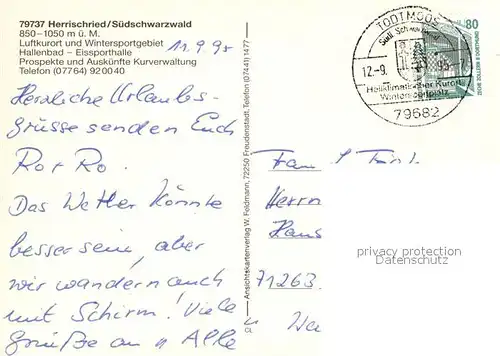 79737 Herrischried/Südschwarzwald
850–1050 m ü. M.
Luftkurort und Wintersportgebiet
Hallenbad – Eissporthalle
Prospekte und Auskünfte Kurverwaltung
Telefon (07764) 920040
11.9.95
Herzliche Urlaubs-
grüsse senden Euch
Ro + Ro.
Das Wetter könnte
besser sein, aber
wir wandern auch
mit Schirm! Viele
Grüße an Alle
Ansichtskartenverlag W. Feldmann, 72250 Freudenstadt, Telefon (07441) 1477
TODTMOOS
Süd Schwarzwald
12.-9. 95.-7
Heilklimatischer Kurort
Wintersportplatz
79682
80
DEUTSCHE BUNDESPOST
Fam
Herrn
Hans
71263
privacy protection
Datenschutz